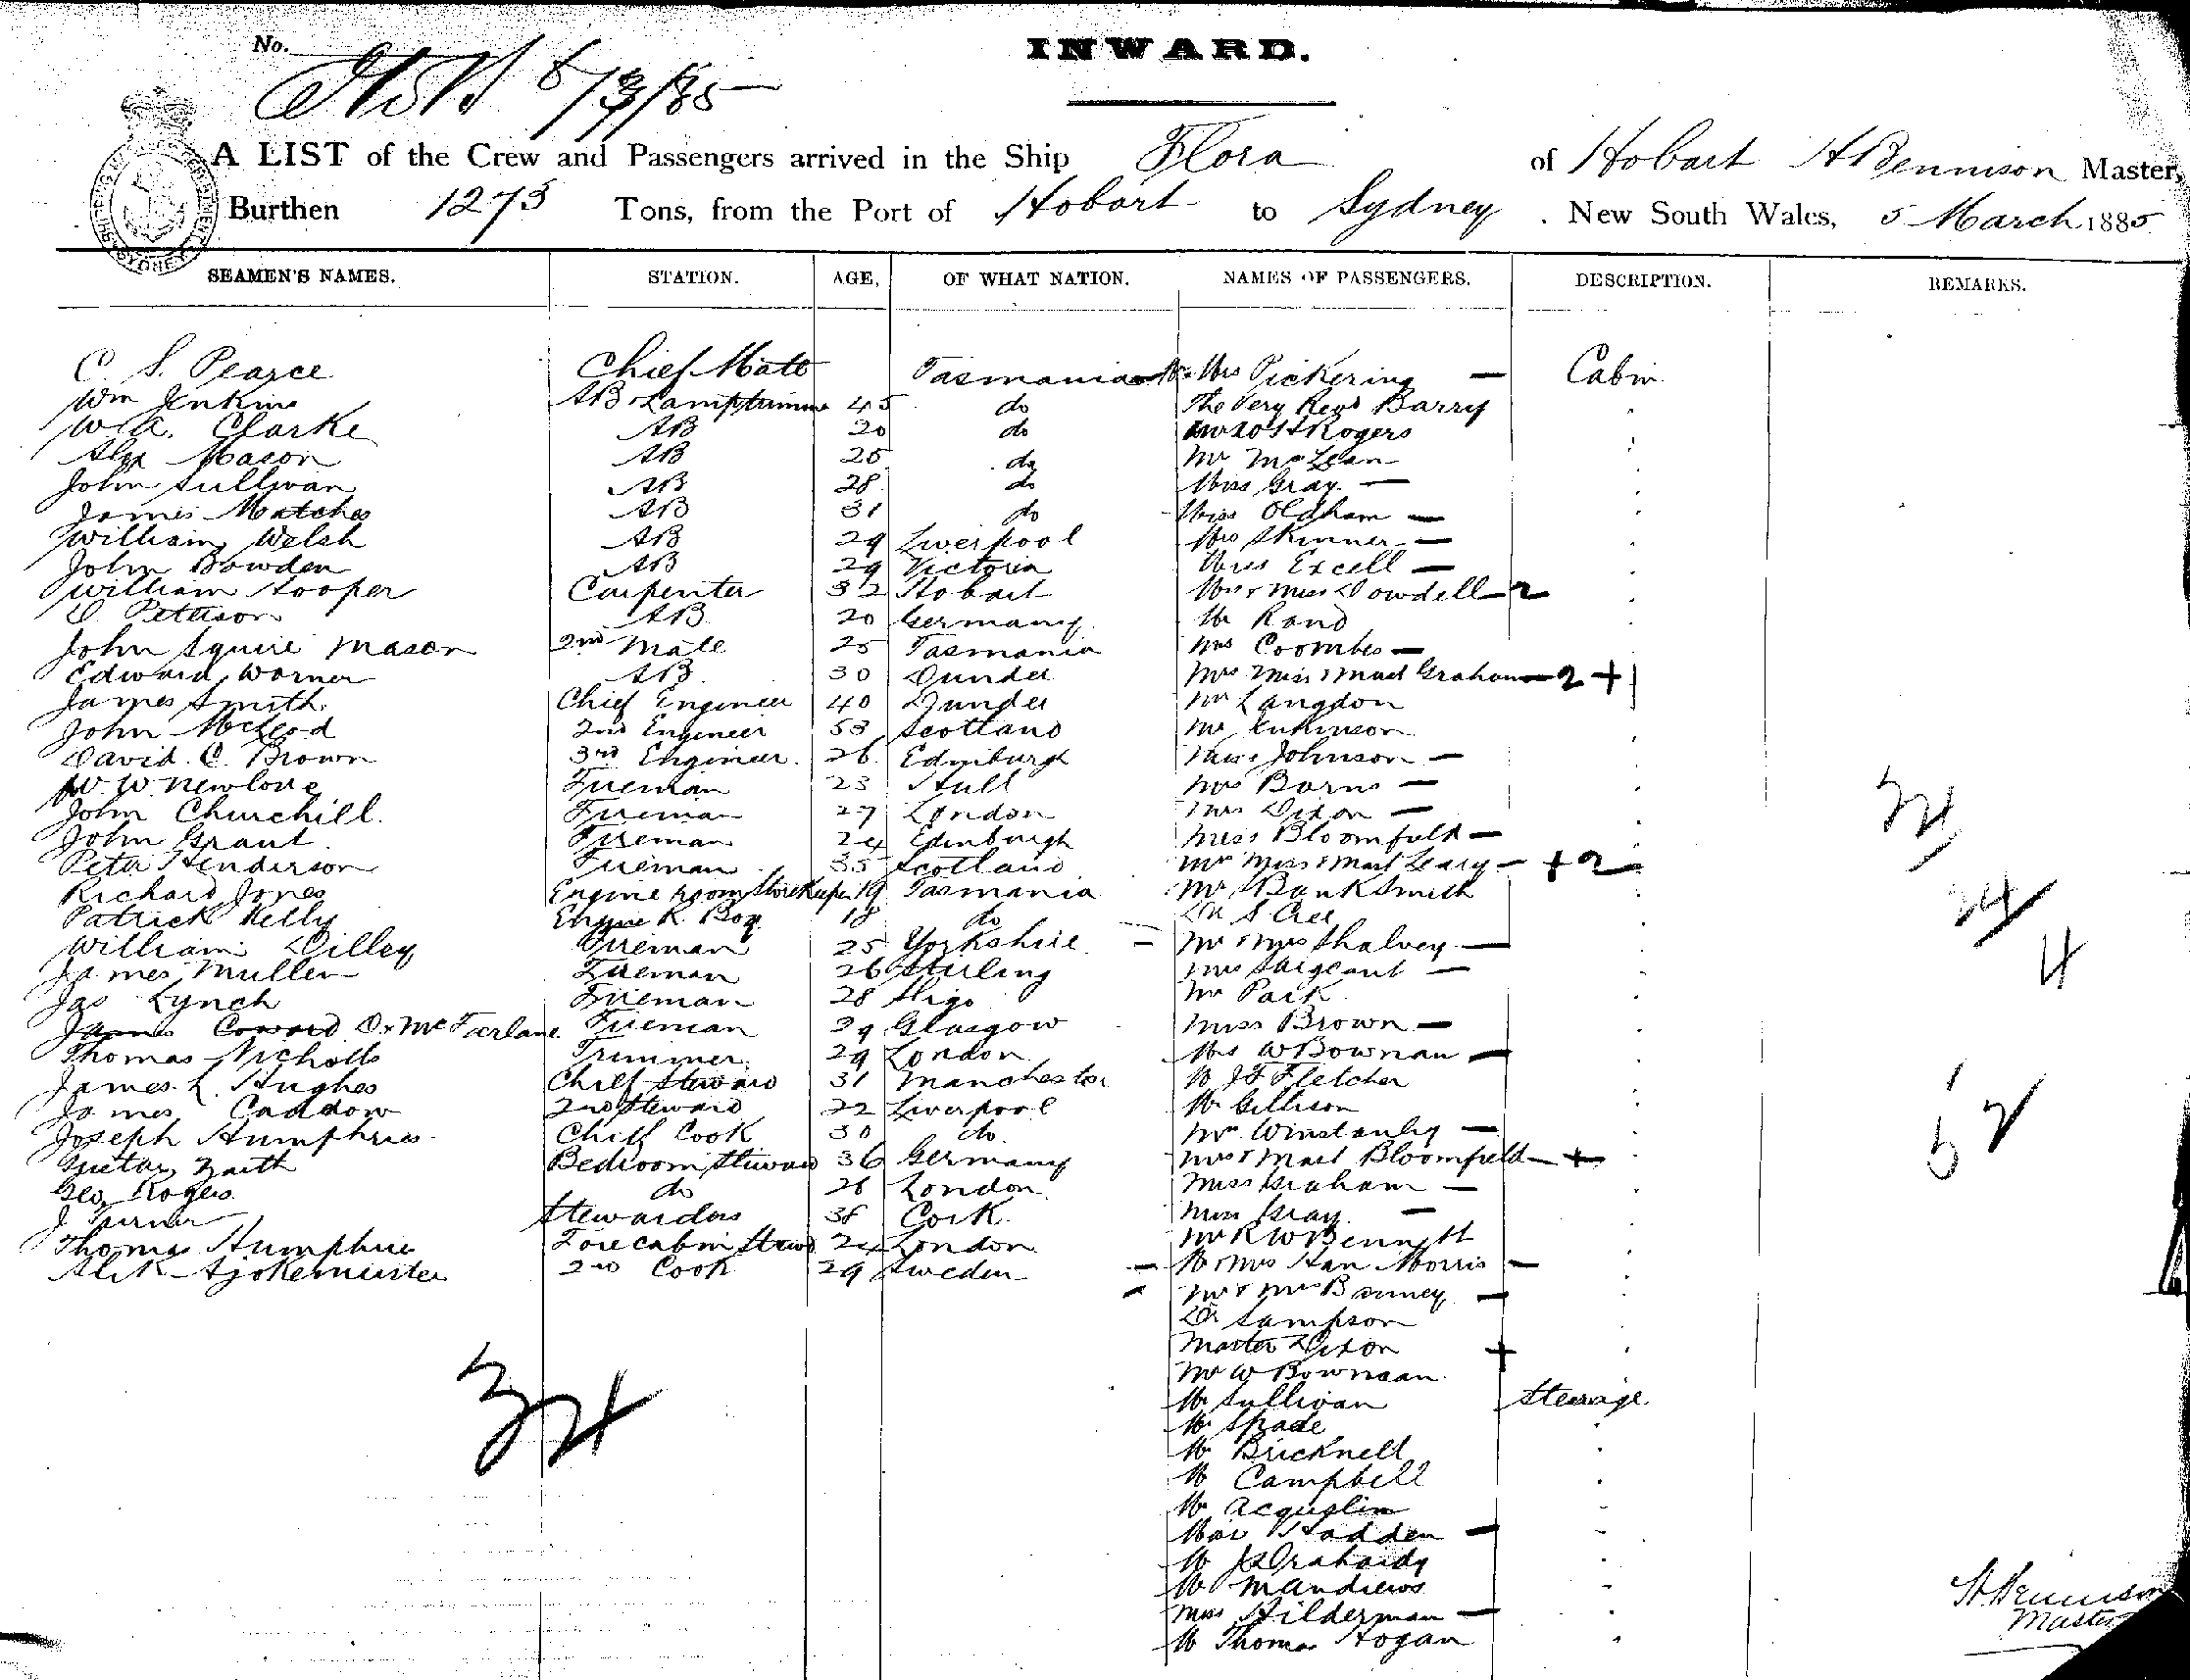 No.
INWARD.
A LIST of the Crew and Passengers arrived in the Ship Flora of Hobart H Bennison Master,
Burthen 1273 Tons, from the Port of Hobart to Sydney . New South Wales, 5 March 1885
SEAMEN'S NAMES. STATION. AGE, OF WHAT NATION. NAMES OF PASSENGERS. DESCRIPTION. REMARKS.
C. S. Pearce Chief Mate Tasmania Mrs Pickering — Cabin
Wm Jenkins AB Lamptrimmer 45 do The Very Revd Barry
W.A. Clarke AB 20 do Rogers
Alex Mason AB 25 do Mr McLean
John Sullivan AB 28 do Miss Gray —
James Matches AB 31 do Miss Oldham —
William Welsh AB 29 Liverpool Mrs Skinner —
John Bowden AB 29 Victoria Miss Excell —
William Hooper Carpenter 32 Hobart Mrs & Miss Dowdell — 2
Peterson AB 20 Germany Mr Rand
John Squire Mason 2nd Mate 25 Tasmania Mrs Coombes —
Edward Worner AB 30 Dundee Mrs Miss & Mast Graham — 2 + 1
James Smith Chief Engineer 40 Dundee Mr Langdon
John McLeod 2nd Engineer 53 Scotland Mr
David C. Brown 3rd Engineer 26 Edinburgh Johnson —
W. W. Newlove Fireman 23 Hull Mrs Barns —
John Churchill Fireman 27 London Mrs Dixon —
John Grant Fireman 24 Edinburgh Miss Bloomfield —
Peter Henderson Fireman 35 Scotland Miss & Mast Leary — + 2
Richard Jones Engine room StoreKeeper 19 Tasmania Mr BankSmith
Patrick Kelly Engine R. Boy 18 do
William Dilley Fireman 25 Yorkshire — Mr & Mrs Shalvey —
James Mullen Fireman 26 Stirling Mrs Sargeant —
Jas Lynch Fireman 28 Sligo Mr Park
James Coward D. McFarlane Fireman 29 Glasgow Miss Brown —
Thomas Nicholls Trimmer 29 London Mrs W Bowman —
James L. Hughes Chief Steward 31 Manchester Mr J F Fletcher
James Caddow 2nd Steward 22 Liverpool Mr Gillison
Joseph Humphries Chief Cook 30 do Winstanley —
Bedroom Steward 36 Germany Mrs & Mast Bloomfield — +
Geo Rogers do 26 London Miss Graham —
J Turner Stewardess 38 Cork Miss Gray —
Thomas Humphries Forecabin Stewd 24 London Mr R W Bennett
2nd Cook 29 Sweden — Mr & Mrs Morris —
— Mr & Mrs Barney —
Dr Sampson
Master Dixon +
Mr W Bowman
Mr Sullivan Steerage
Mr Spade
Mr Bricknell
Mr Campbell
Mr
Hadden —
Mr
Mr
Miss Hilderman —
Mr Thomas Hogan
34
24
4
52
34
H Bennison
Master